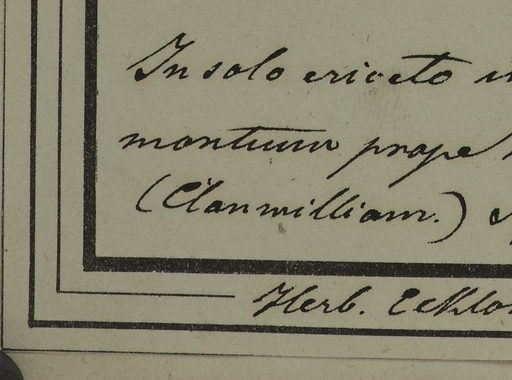 In solo ericeto
montium prope
(Clanwilliam.)
Herb. Ecklon